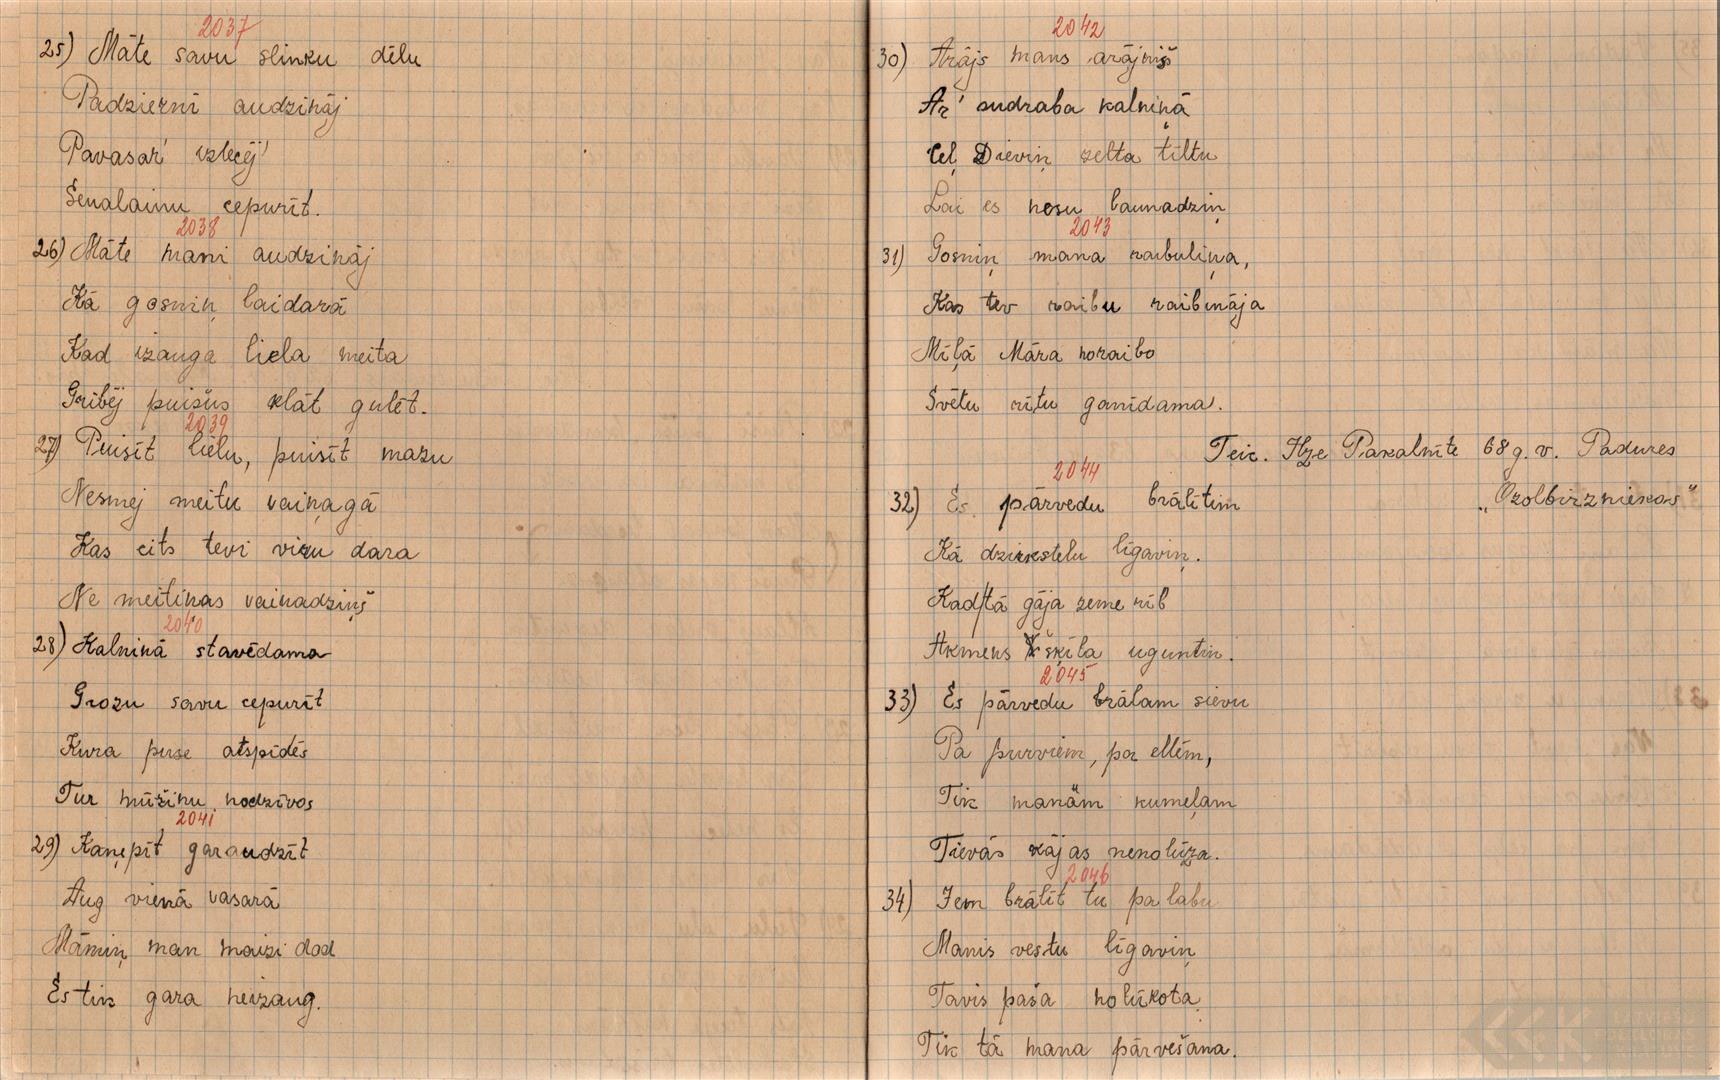 2037
25) Māte savu slinku dēlu
Padziernī audzināj
Pavasar' izlecēj'
Senalainu cepurīt.
2038
26) Māte mani audzināj
Kā gosniņ laidarā
Kad izauga liela meita
Gribēj puišus klāt gulēt.
2039
27) Puisīt lielu, puisīt mazu
Nesmej meitu vaiņagā
Kas cits tevi vīru dara
Ne meitiņas vainadziņš
2040
28) Kalniņā stavēdama
Grozu savu cepurīt
Kura puse atspīdēs
Tur mūžiņu nodzīvos
2041
29) Kaņepīt garaudzīt
Aug vienā vasarā
Māmiņ man maizi dod
Es tik gara neizaug.
2042
30) Arājs mans arājiņš
Ar' sudraba kalniņā
Ceļ Dieviņ zelta tiltu
Lai es nesu launadziņ
2043
31) Gosniņ mana raibuliņa,
Kas tev raibu raibināja
Mīļā Māra noraibo
Svētu rītu ganīdama.
Teic. Ilze Pakalnīte 68 g. v. Padures
„Ozolbirzniekos"
2044
32) Es pārvedu brālītim
Kā dzirkstelu līgaviņ.
Kad tā gāja zeme rīb
Akmens šķīla uguntiņ.
2045
33) Es pārvedu brālam sievu
Pa purviem, pa ellēm,
Tik manām kumeļam
Tievās kājas nenolūza.
2046
34) Jem brālīt tu pa labu
Manis vestu līgaviņ
Tavis paša nolūkota
Tik tā mana pārvešana.